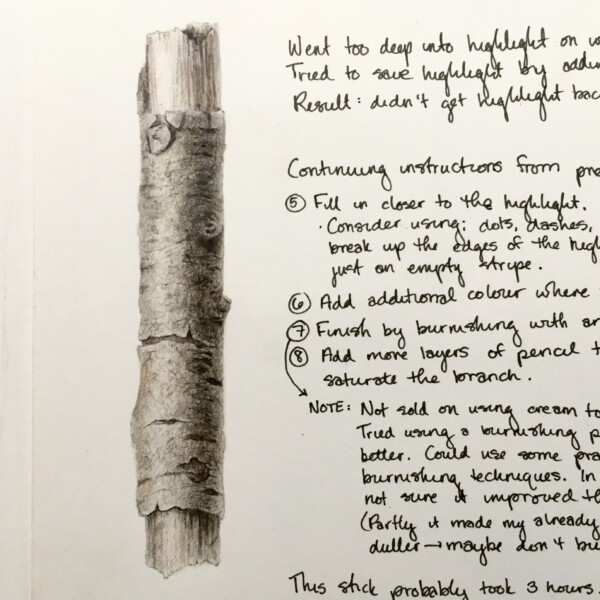 Went too deep into highlight on
Tried to save highlight by
Result: didn't get highlight
Continuing instructions from
⑤ Fill in closer to the highlight.
· Consider using: dots, dashes,
break up the edges of the
just an empty stripe.
⑥ Add additional colour where
⑦ Finish by burnishing with
⑧ Add more layers of pencil
saturate the branch.
NOTE: Not sold on using cream
Tried using a burnishing
better. Could use some
burnishing techniques. In
not sure it improved
(Partly it made my already
duller → maybe don't
This stick probably took 3 hours.